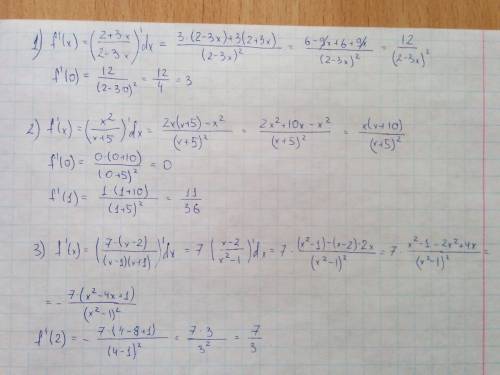 1) f'(x) = (2+3x / 2-3x)' dx = 3·(2-3x)+3(2+3x) / (2-3x)² = 6-9x+6+9x / (2-3x)² = 12 / (2-3x)²
f'(0) = 12 / (2-3·0)² = 12/4 = 3
2) f'(x) = (x² / x+5)' dx = 2x(x+5)-x² / (x+5)² = 2x²+10x-x² / (x+5)² = x(x+10) / (x+5)²
f'(0) = 0·(0+10) / (0+5)² = 0
f'(1) = 1·(1+10) / (1+5)² = 11/36
3) f'(x) = (7·(x-2) / (x-1)(x+1))' dx = 7·(x-2 / x²-1)' dx = 7·(x²-1)-(x-2)·2x / (x²-1)² = 7· x²-1-2x²+4x / (x²-1)² =
= - 7·(x²-4x+1) / (x²-1)²
f'(2) = - 7·(4-8+1) / (4-1)² = 7·3 / 3² = 7/3